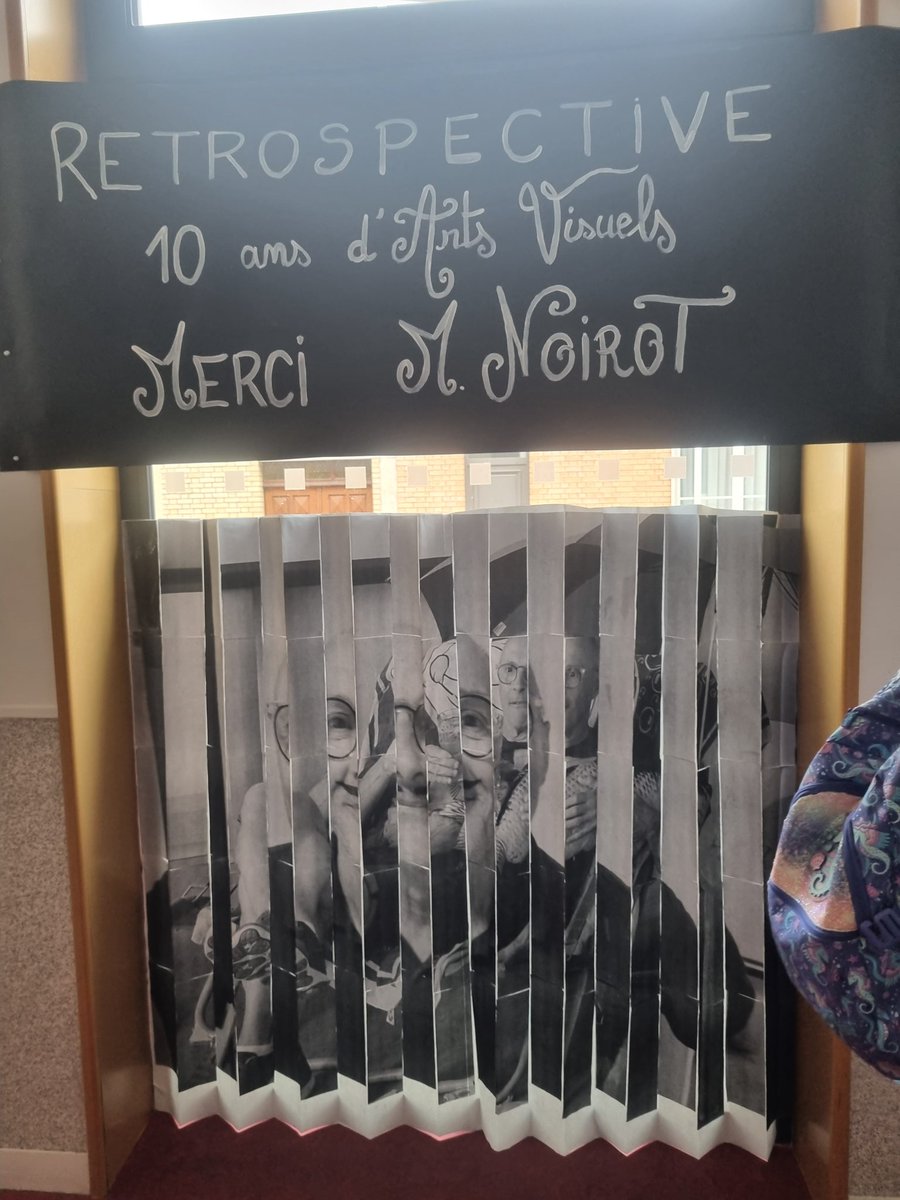 RETROSPECTIVE
10 ans d'Arts Visuels
MERCi M. NOiROT